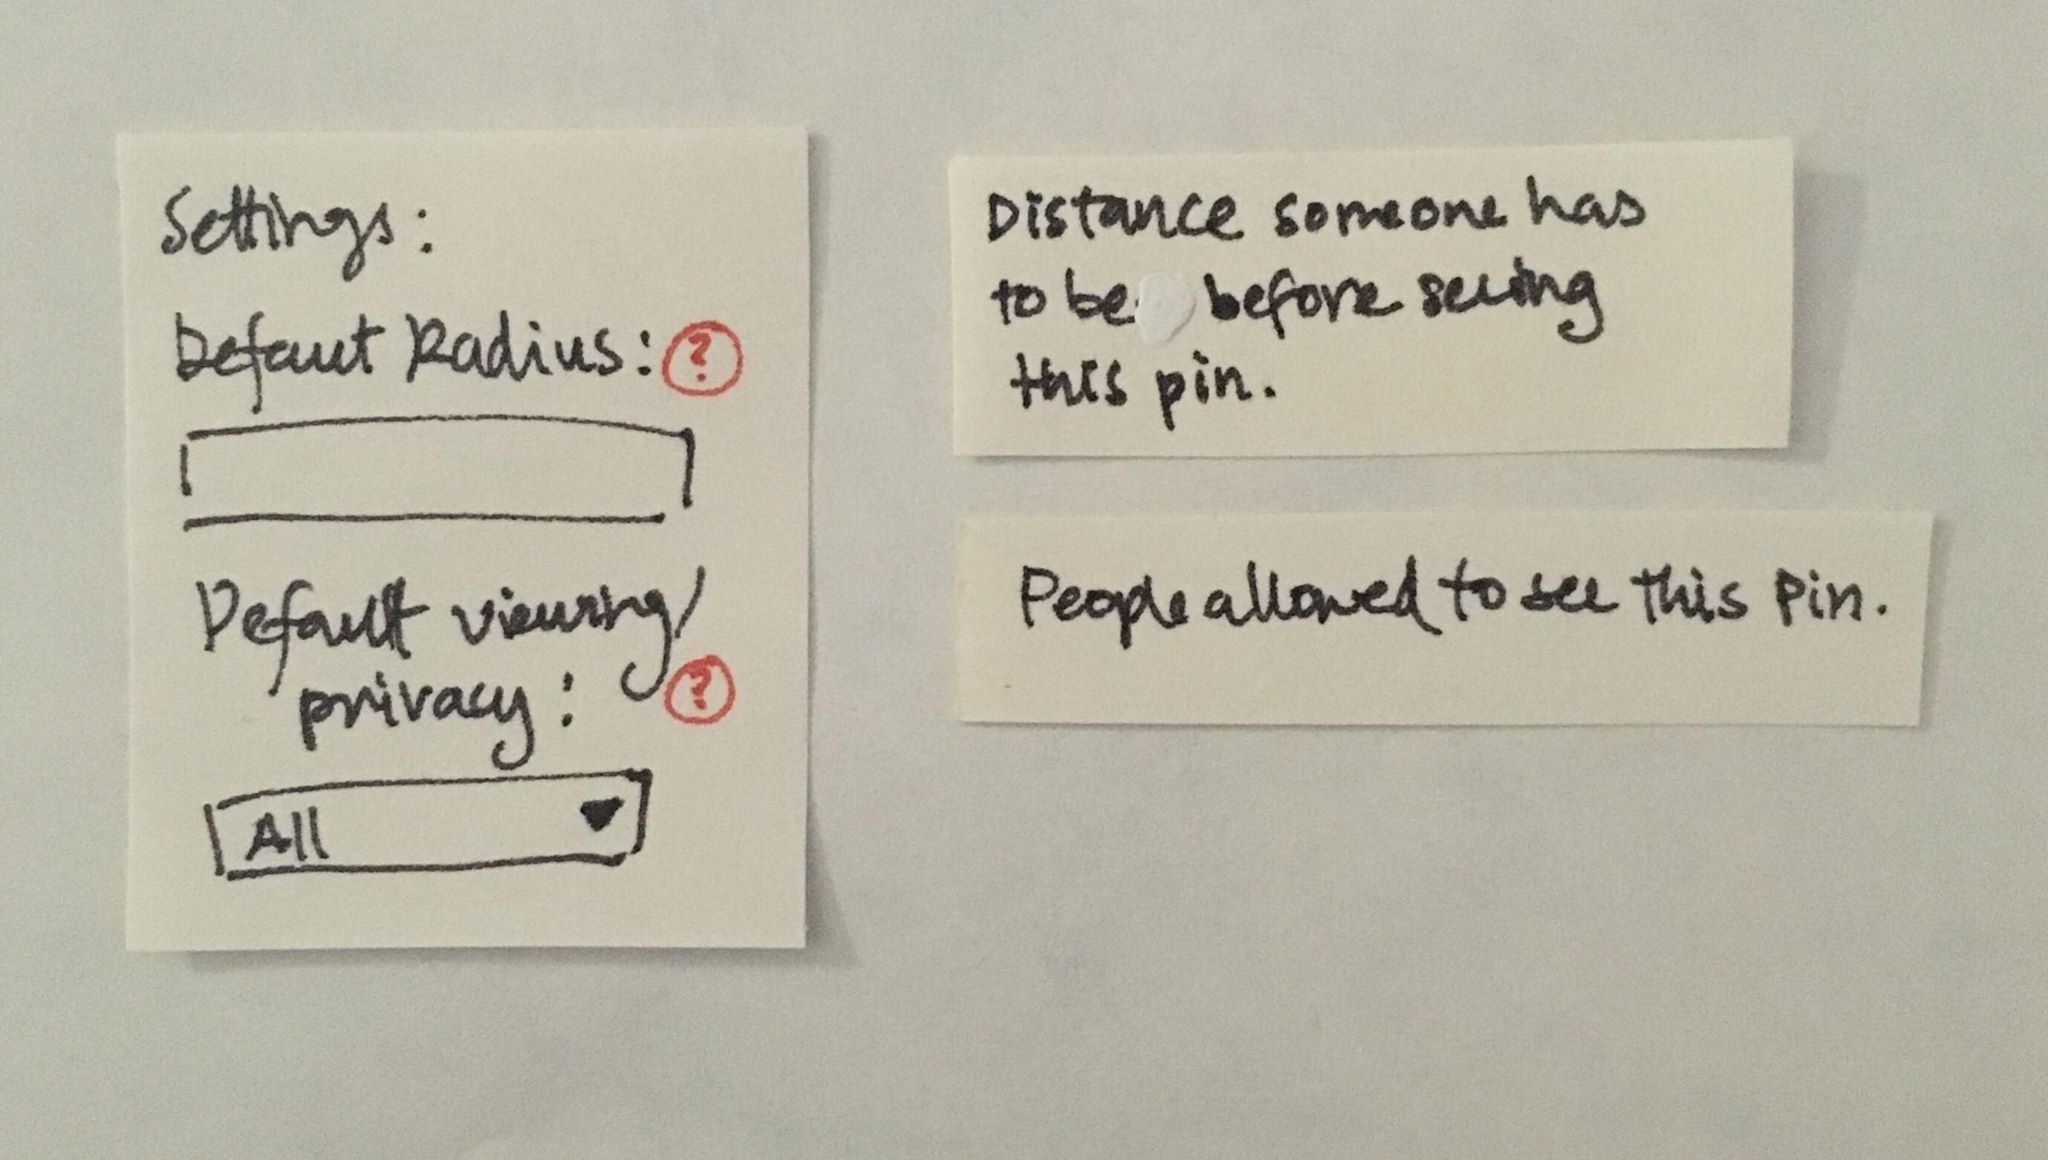 Settings:
Defaut Radius: ?
Default viewing/
privacy: ?
All
Distance someone has
to be before seeing
this pin.
People allowed to see this Pin.